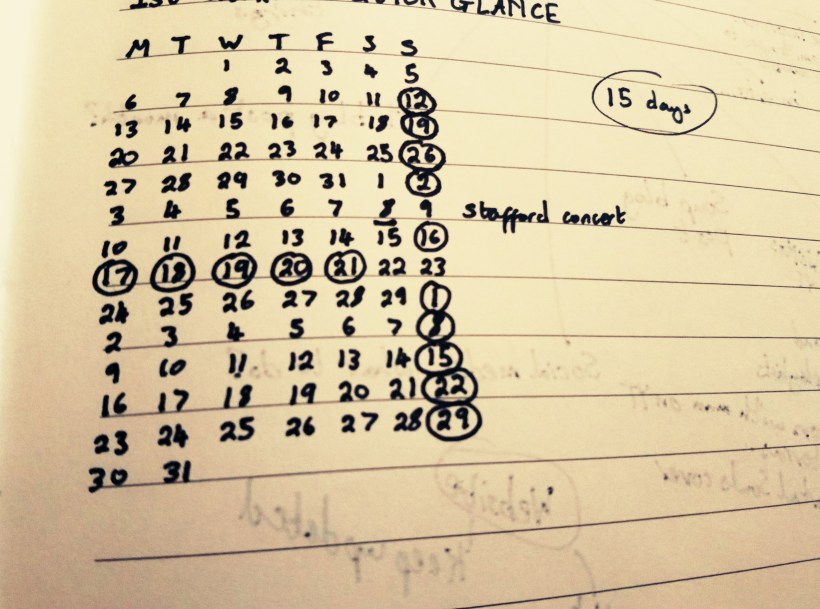 GLANCE
M T W T F S S
1 2 3 4 5
6 7 8 9 10 11 12
13 14 15 16 17 18 19
15 days
20 21 22 23 24 25 26
27 28 29 30 31 1 2
3 4 5 6 7 8 9 stafford concert
10 11 12 13 14 15 16
17 18 19 20 21 22 23
24 25 26 27 28 29 1
2 3 4 5 6 7 8
9 10 11 12 13 14 15
16 17 18 19 20 21 22
23 24 25 26 27 28 29
30 31